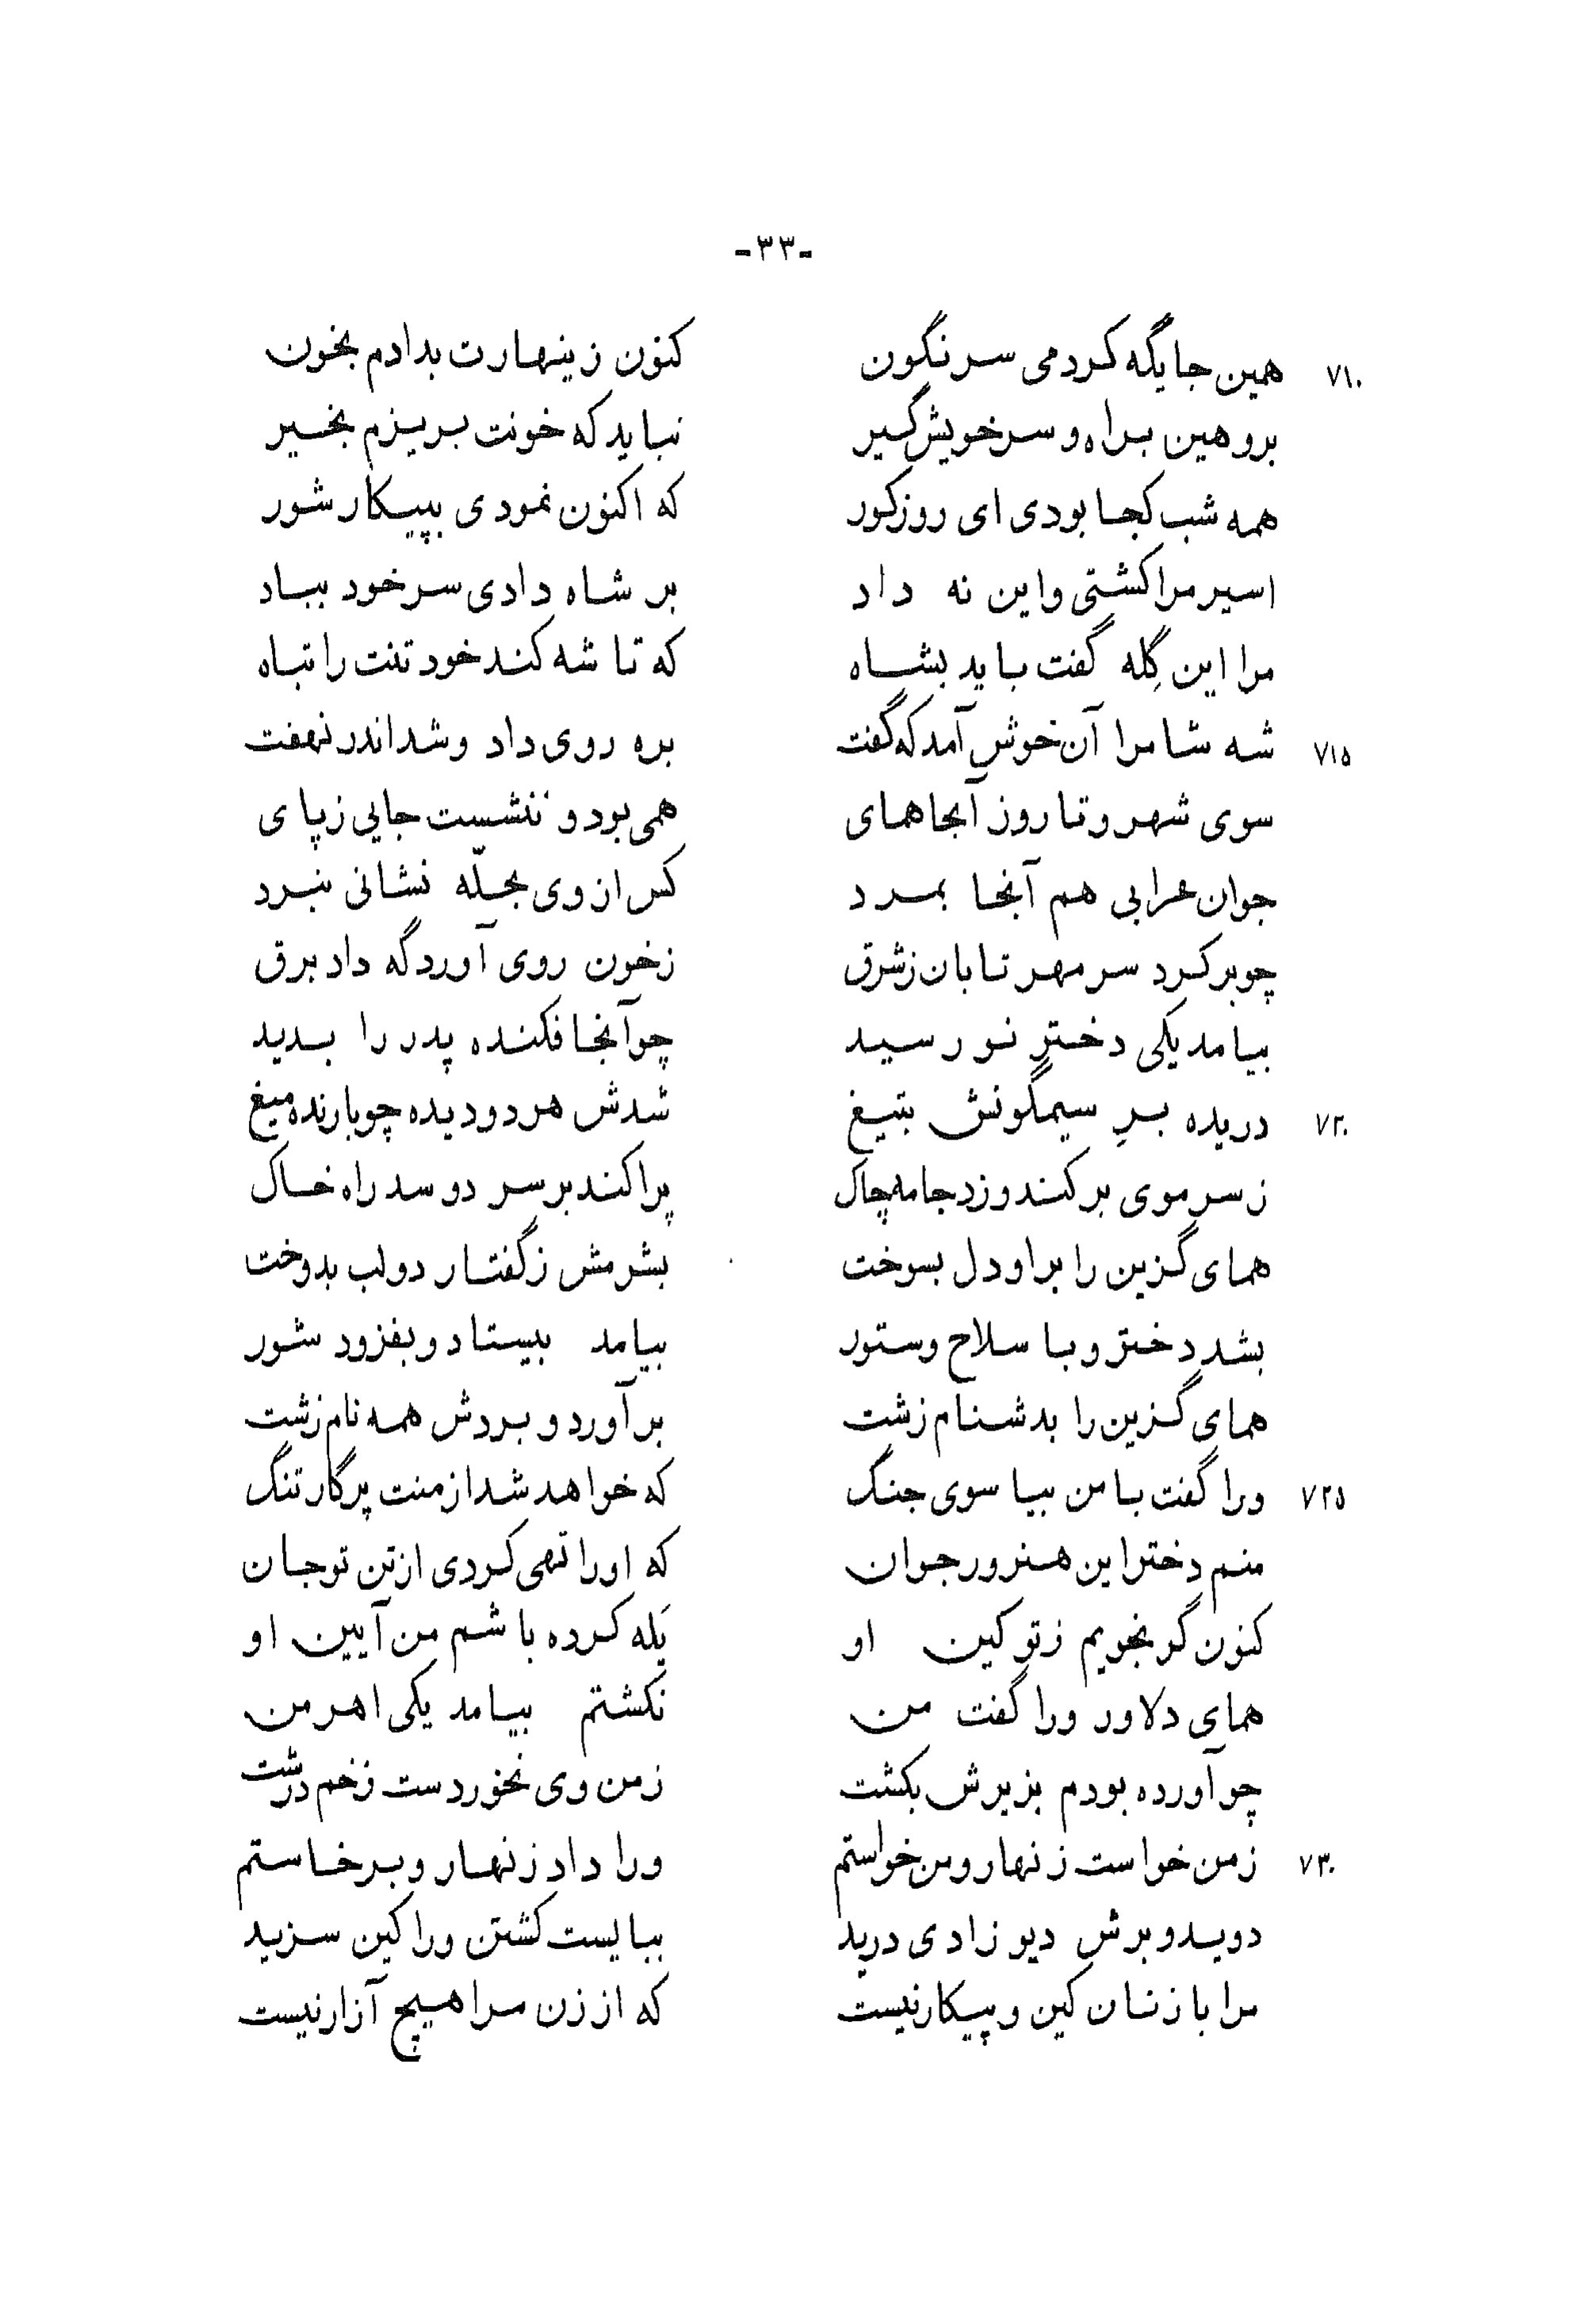 -۳۳-
۷۱۰ همین جایگه کردمی سرنگون کنون زینهارت بدادم بخون
برو هین براه و سر خویش گیر نباید که خونت بریزم بخیر
همه شب کجا بودی ای روزکور که اکنون نمودی بپیکار شور
اسیر مرا کشتی و این نه داد بر شاه دادی سر خود بباد
مرا این گِله گفت باید بشاه که تا شه کند خود تنت را تباه
۷۱۵ شه شامرا آن خوش آمد که گفت بره روی داد و شد اندر نهفت
سوی شهر و تا روز آنجا همای همی بود و ننشست جایی ز پای
جوان عرابی هم آنجا بمرد کس از وی بحلّه نشانی نبرد
چو بر کرد سر مهر تابان ز شرق ز خون روی آورد گه داد برق
بیامد یکی دخترِ نو رسید چو آنجا فکنده پدر را بدید
۷۲۰ دریده برِ سیمگونش بتیغ شدش هر دو دیده چو بارنده میغ
ز سر موی بر کند و زد جامه چاک پراکند بر سر دو سد راه خاک
همای گزین را بر او دل بسوخت بشرمش ز گفتار دو لب بدوخت
بشد دختر و با سلاح و ستور بیامد بیستاد و بفزود شور
همای گزین را بدشنام زشت بر آورد و بردش همه نام زشت
۷۲۵ ورا گفت با من بیا سوی جنگ که خواهد شد از منت پرگار تنگ
منم دختر این هنرور جوان که او را تهی کردی از تن تو جان
کنون گر نجویم ز تو کین او یَله کرده باشم من آیین او
همای دلاور ورا گفت من نکشتم بیامد یکی اهرمن
چو آورده بودم بزیرش بکشت ز من وی نخوردست زخم درشت
۷۳۰ ز من خواست زنهار و من خواستم ورا داد زنهار و برخاستم
دوید و برش دیو زادی درید ببایست کشتن ورا کین سزید
مرا با زنان کین و پیکار نیست که از زن مرا هیچ آزار نیست